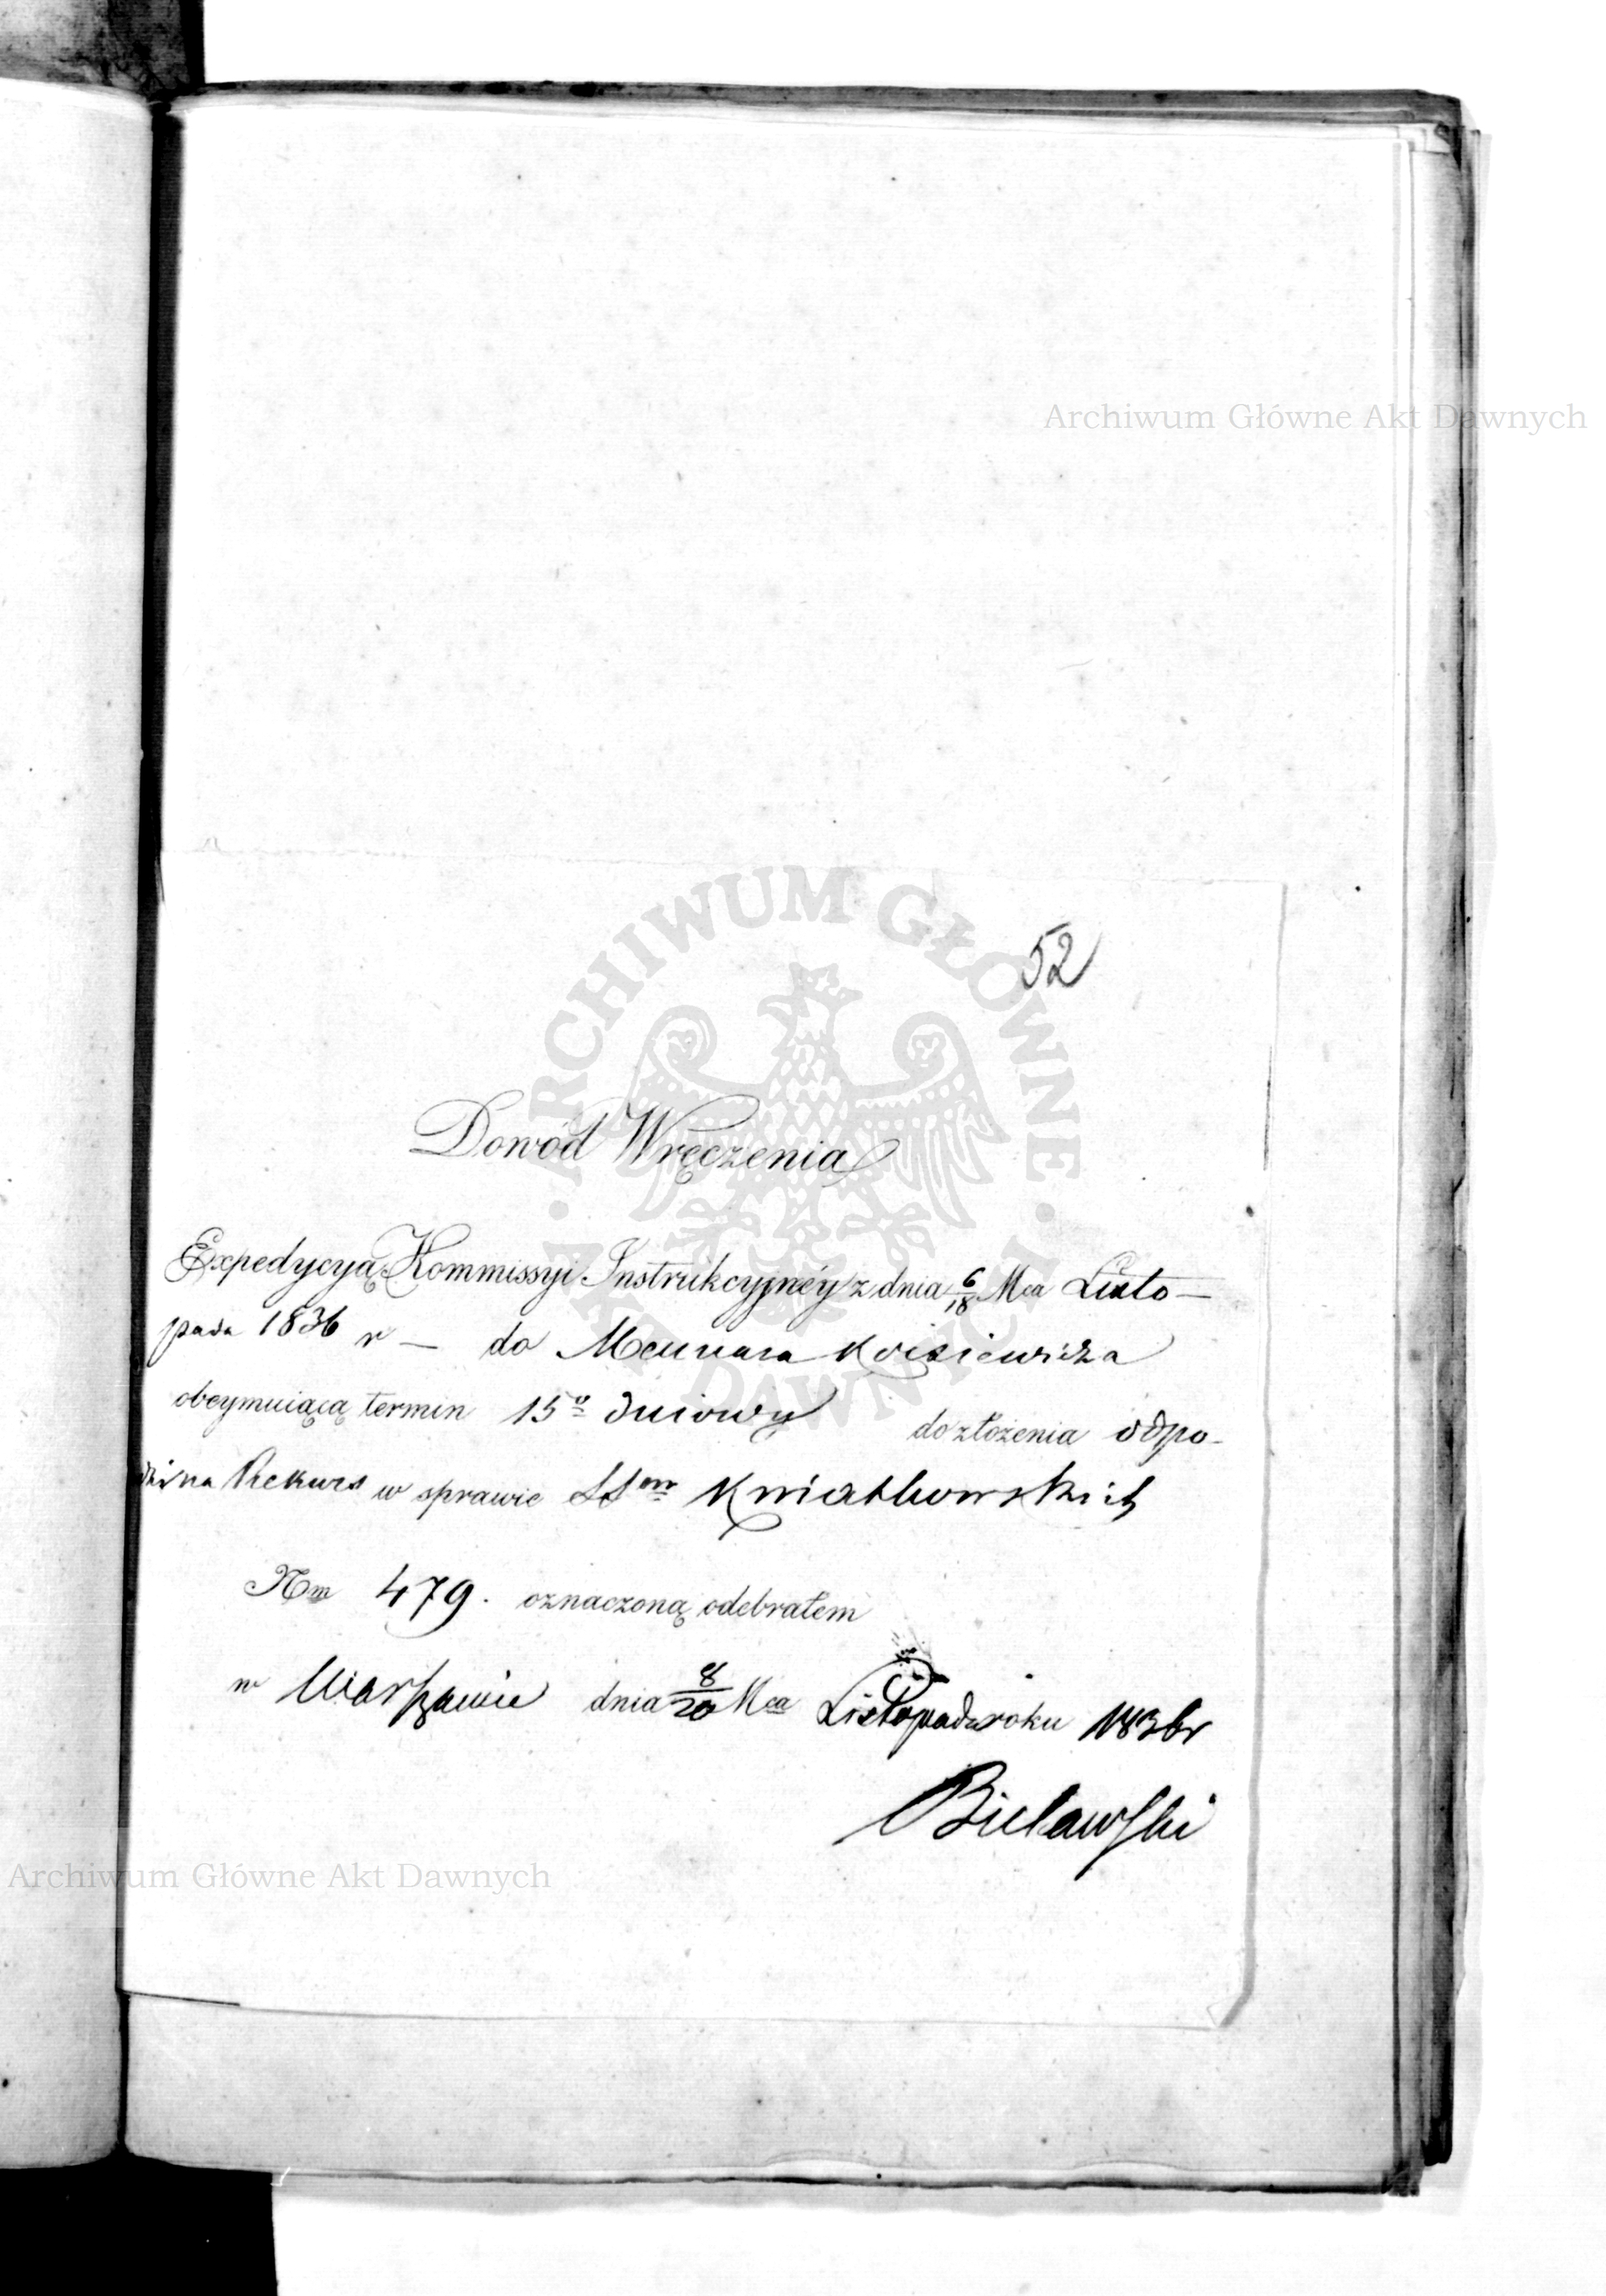 Archiwum Główne Akt Dawnych
52
ARCHIWUM GŁÓWNE · AKT DAWNYCH ·
Dowód Wręczenia
Expedycyą Kommissyi Instrukcyjnéy z dnia 6/18 Mca Listo-
pada 1836 r — do Mecenasa
obeymuiącą termin 15o dniowy do złożenia odpo-
na Rekurs w sprawie SSów Kwiatkowskich
Nm 479. oznaczoną odebrałem
w Warszawie dnia 8/20 Mca Listopada roku 1836 r
Bielawski
Archiwum Główne Akt Dawnych